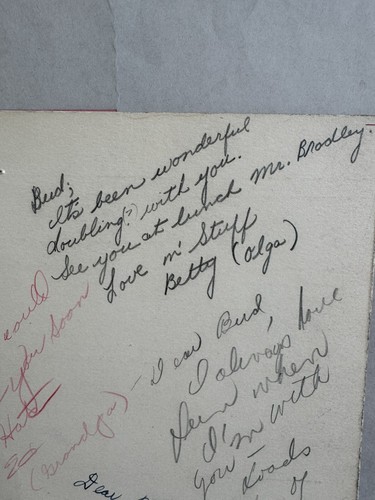 Bud;
It's been wonderful
doubling(?) with you.
See you at lunch Mr. Bradley.
Love n' Stuff
Betty (Olga)
could
you soon
(Grandpa) - Dear Bud,
I always have
when
I'm with
you -
Loads
of
Dear